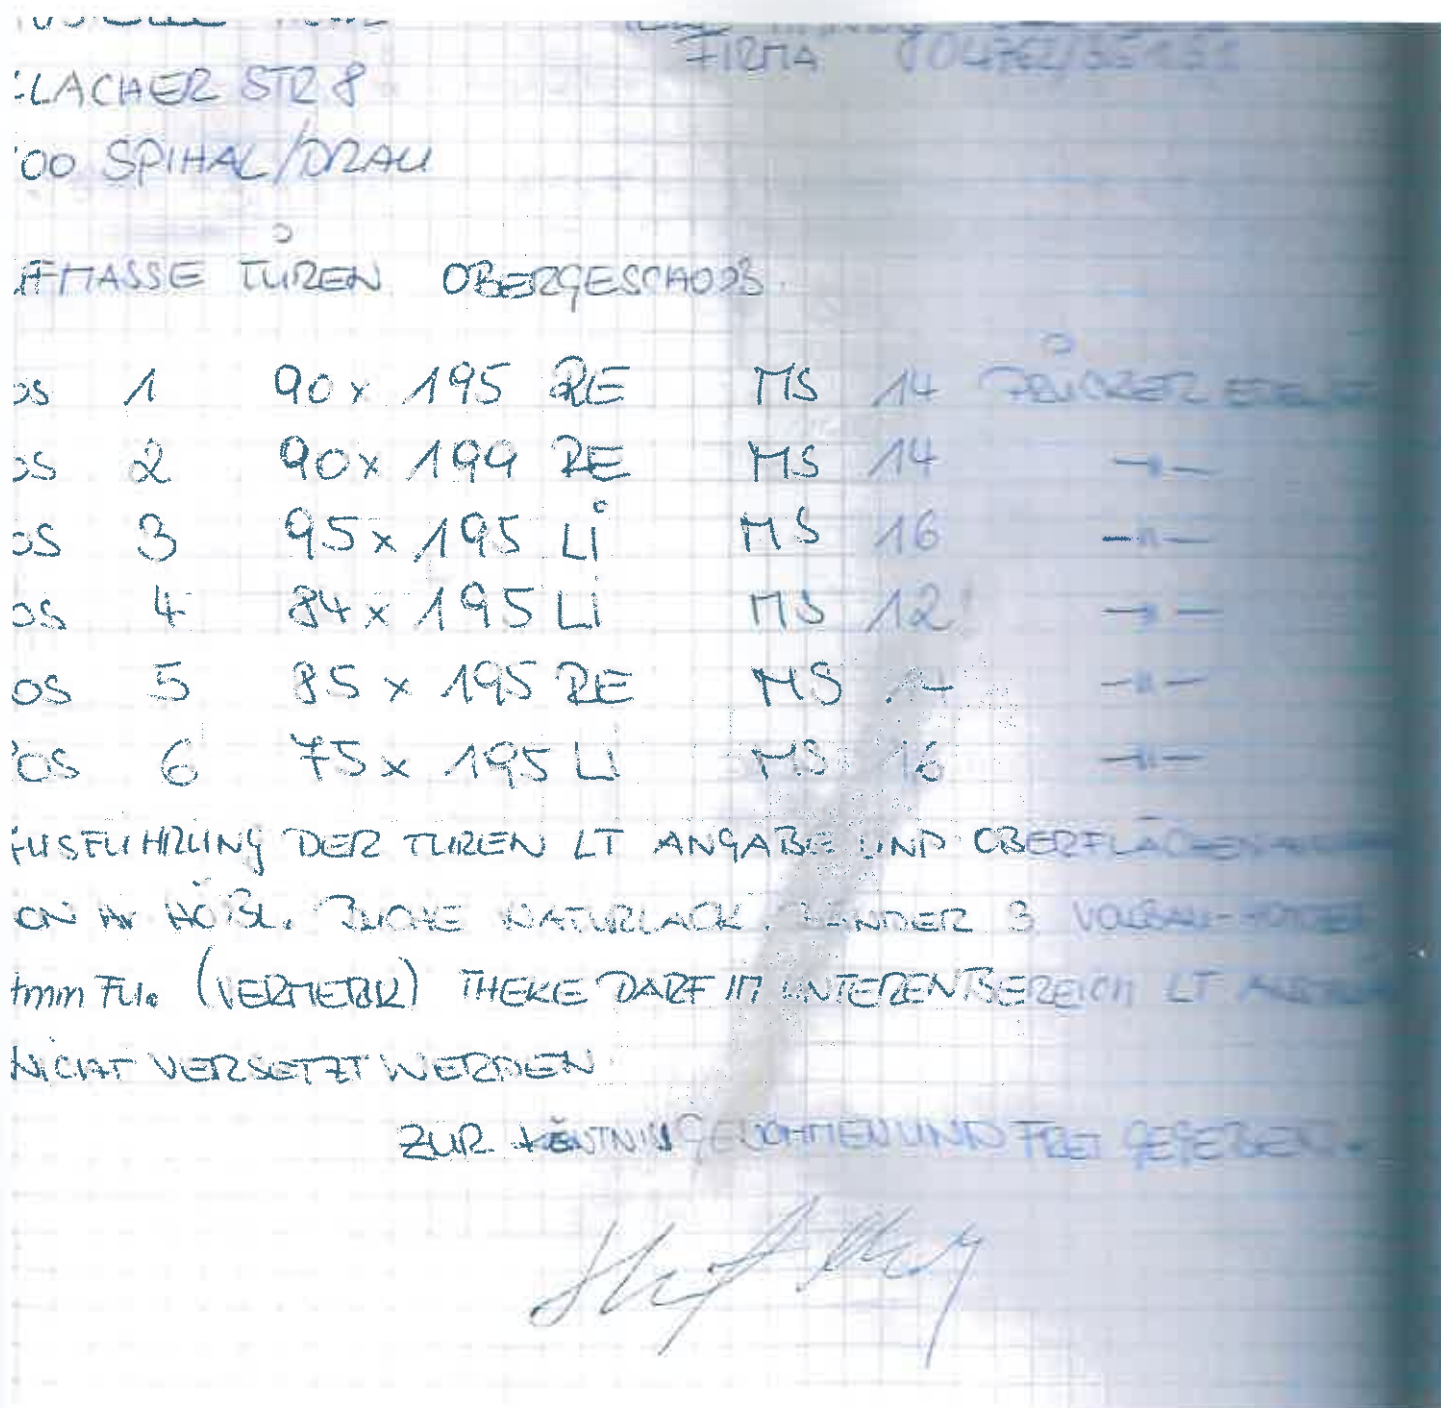 FIRMA
LACHER STR 8
00 SPIHAL/DRAU
FMASSE TÜREN OBERGESCHOSS.
OS 1 90 x 195 RE MS 14 DRÜCKER
OS 2 90 x 199 RE MS 14 -"-
OS 3 95 x 195 Li MS 16 -"-
OS 4 84 x 195 Li MS 12! -"-
OS 5 85 x 195 RE MS -"-
POS 6 75 x 195 Li MS 16 -"-
AUSFÜHRUNG DER TÜREN LT ANGABE UND
ON Hr HÖBL. BUCHE NATURLACK. BÄNDER 3
4mm FU. (VERMERK) THEKE DARF IM UNTEREN BEREICH LT
NICHT VERSETZT WERDEN.
ZUR KENTNIS GENOHMEN UND FREI GEGEBEN.